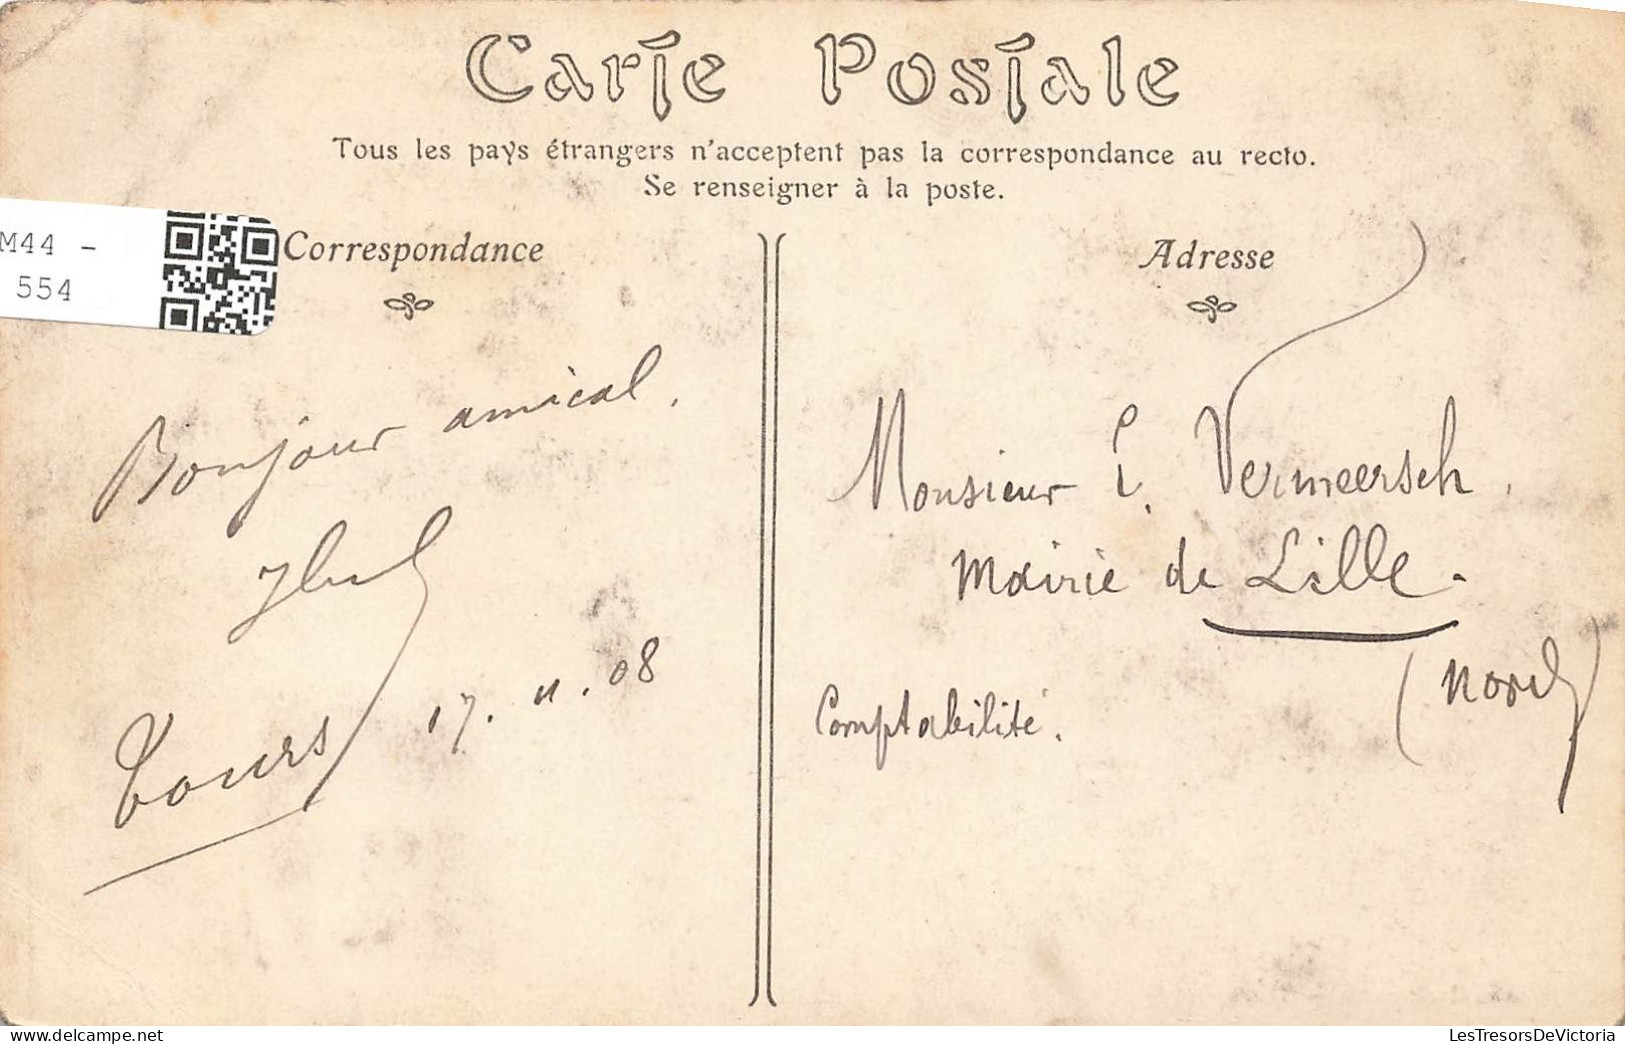 Carte Postale
Tous les pays étrangers n'acceptent pas la correspondance au recto.
Se renseigner à la poste.
M44 -
554
Correspondance
Bonjour amical.
Tours
17.11.08
Adresse
Monsieur Vermeersch.
Mairie de Lille.
(Nord)
Comptabilité.
delcampe.net
LesTresorsDeVictoria